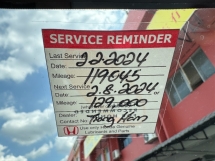 SERVICE REMINDER
Last Service
Date: 22-2024
Mileage: 119045
Next Service
Date: 2.8.2024
Mileage: 129,000
Dealer
Contact No:
Use only Honda Genuine
Lubricants and Parts
HONDA